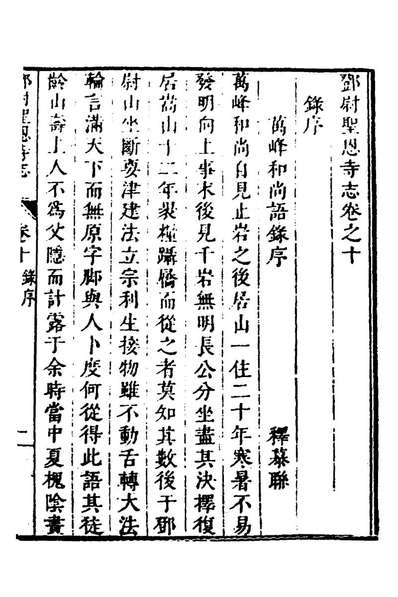 鄧尉聖恩寺志卷之十
錄序
萬峰和尚語錄序
釋慕聯
萬峰和尚自見止岩之後居山一住二十年寒暑不易
發明向上事末後見千岩無明長公分坐盡其決擇復
居嵩山十二年裝橦躡屩而從之者莫知其數後于鄧
尉山坐斷要津建法立宗利生接物雖不動舌轉大法
輪言滿天下而無原字脚與人卜度何從得此語其徒
齡山壽上人不為父隱而計露于余時當中夏槐陰晝
鄧尉聖恩寺志
卷十 錄序
一